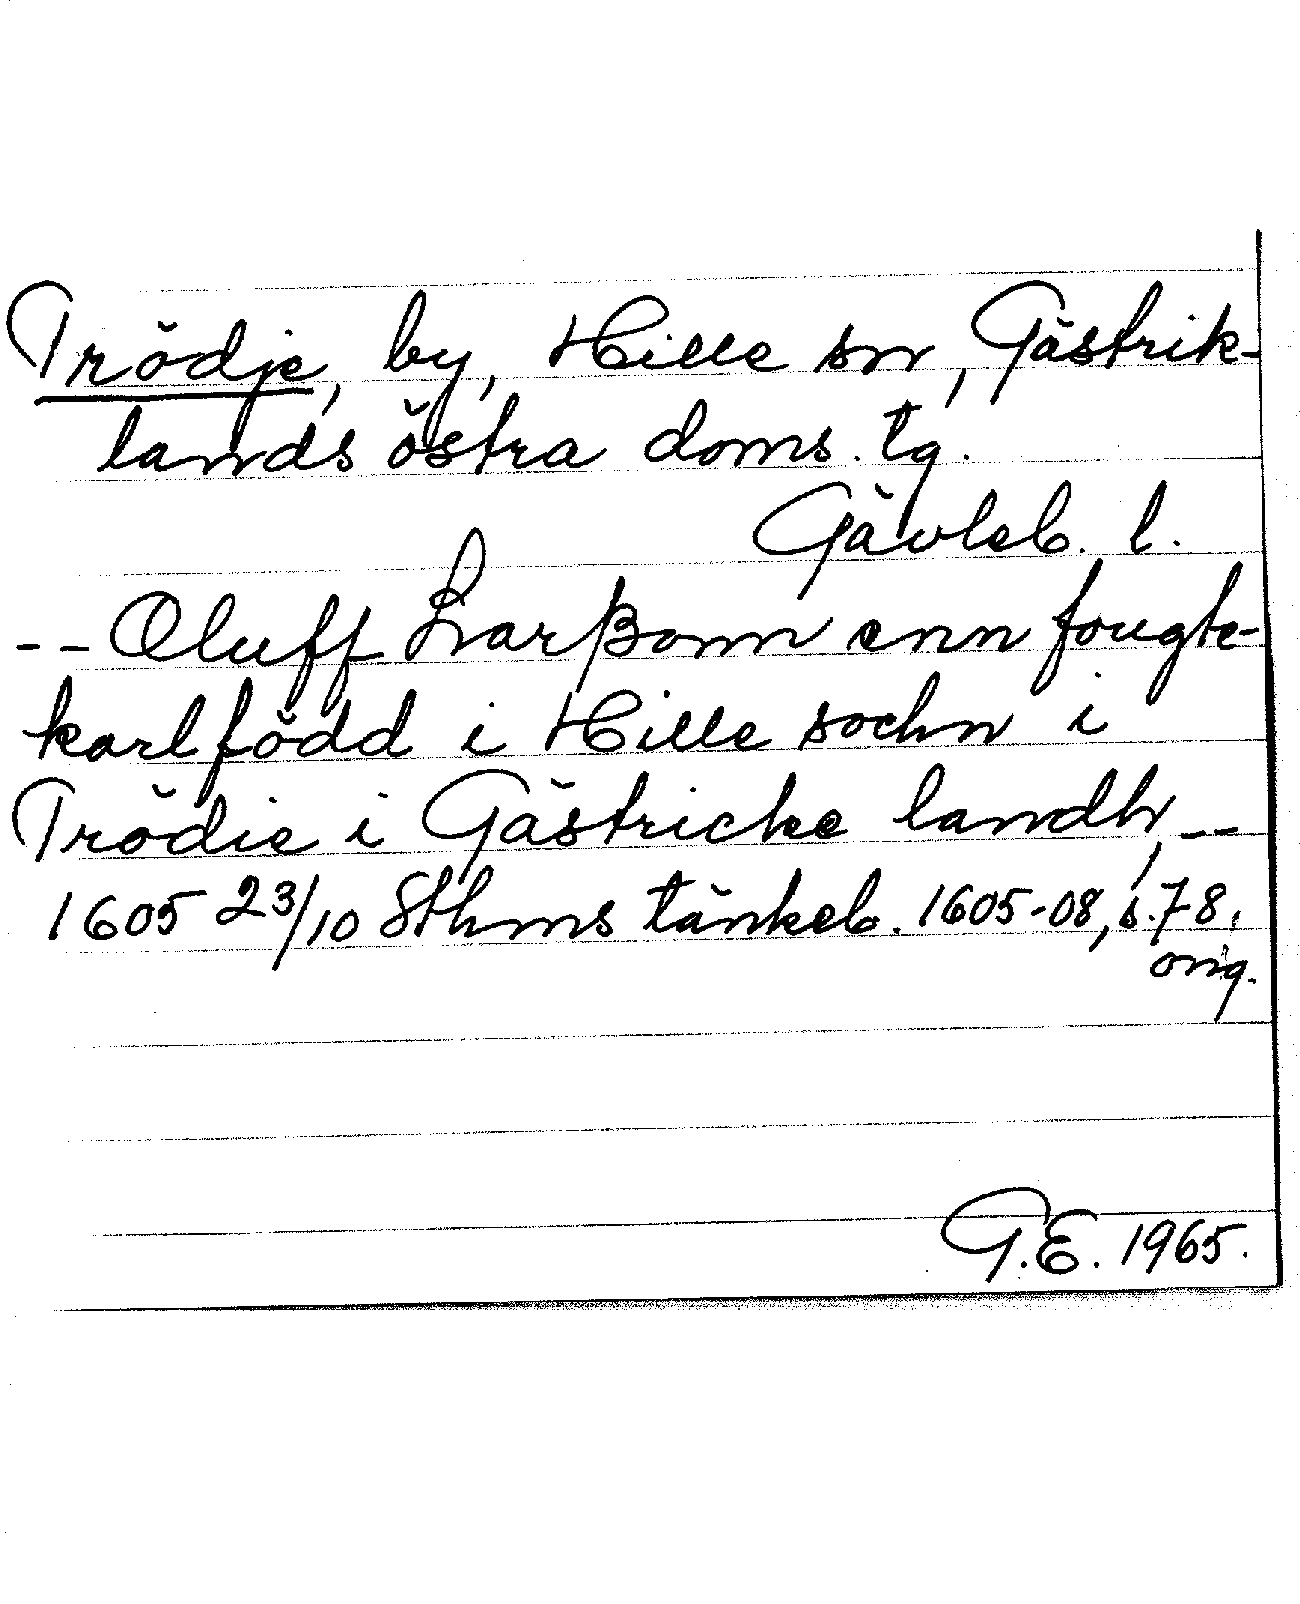 Trödje, by, Hille sn, Gästrik-
lands östra doms. tg.
Gävleb. l.
-- Oluff Larßonn enn fougte-
karl född i Hille sochn i
Trödie i Gästricke landh, --
1605 23/10 Sthms tänkeb. 1605-08, s. 78,
orig.
G.E. 1965.